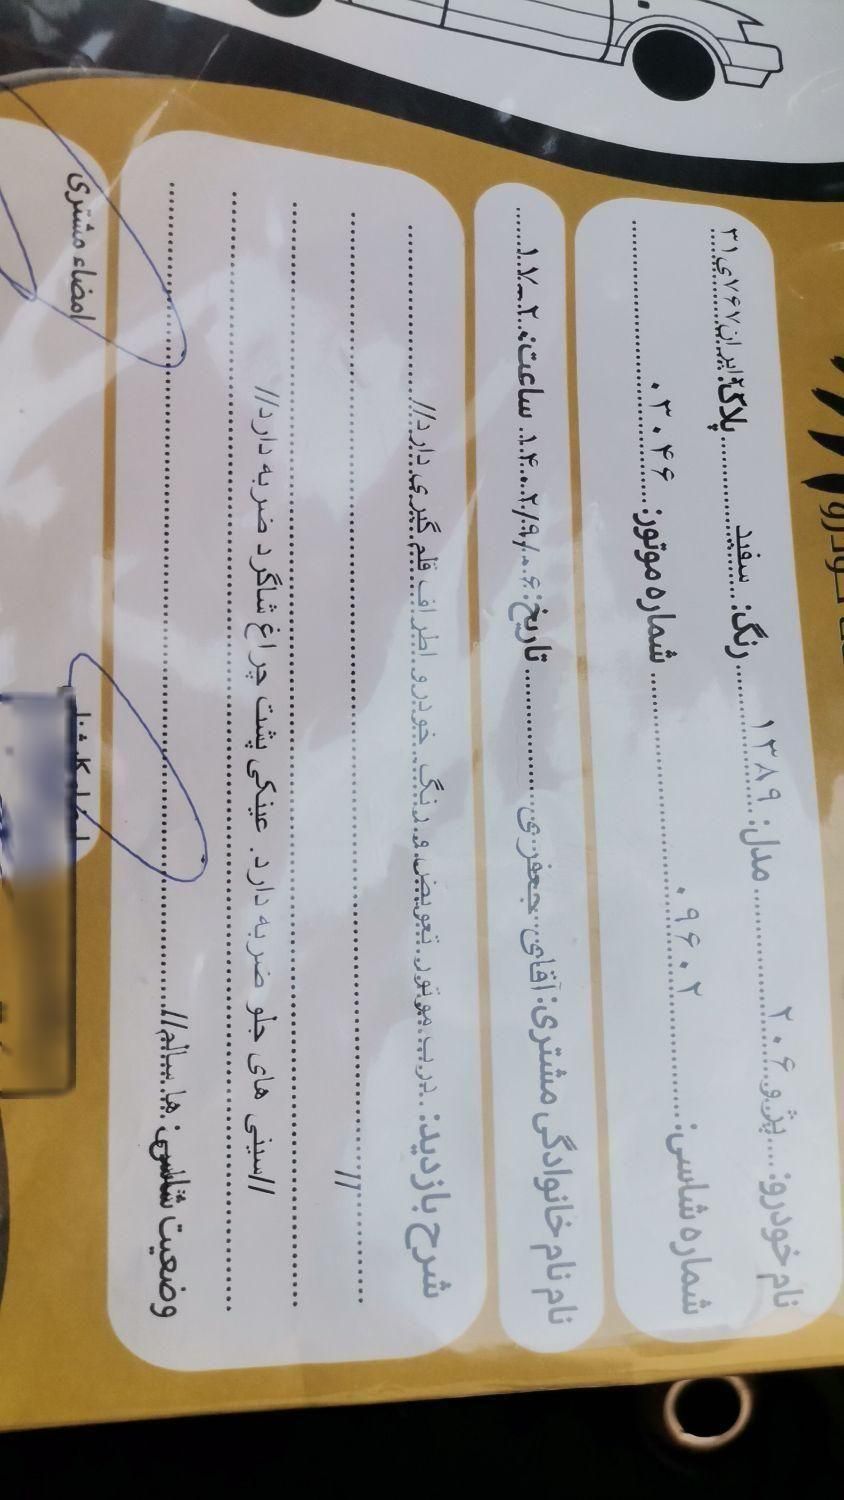 نام خودرو: پژو ۲۰۶ مدل: ۱۳۸۹ رنگ: سفید پلاک: ایران ۷۶۷ی۳۱
شماره شاسی: ۰۹۶۰۲ شماره موتور: ۰۳۰۴۶
نام نام خانوادگی مشتری: آقای جعفری تاریخ: ۱۴۰۲/۹/۰۶ ساعت: ۱۷-۲۰
شرح بازدید: درب موتور تعویض و رنگ خودرو اطراف قلم گیری دارد//
//
//سینی های جلو ضربه دارد. عینکی پشت چراغ شاگرد ضربه دارد//
وضعیت شاسی: ها سالم//
امضاء مشتری